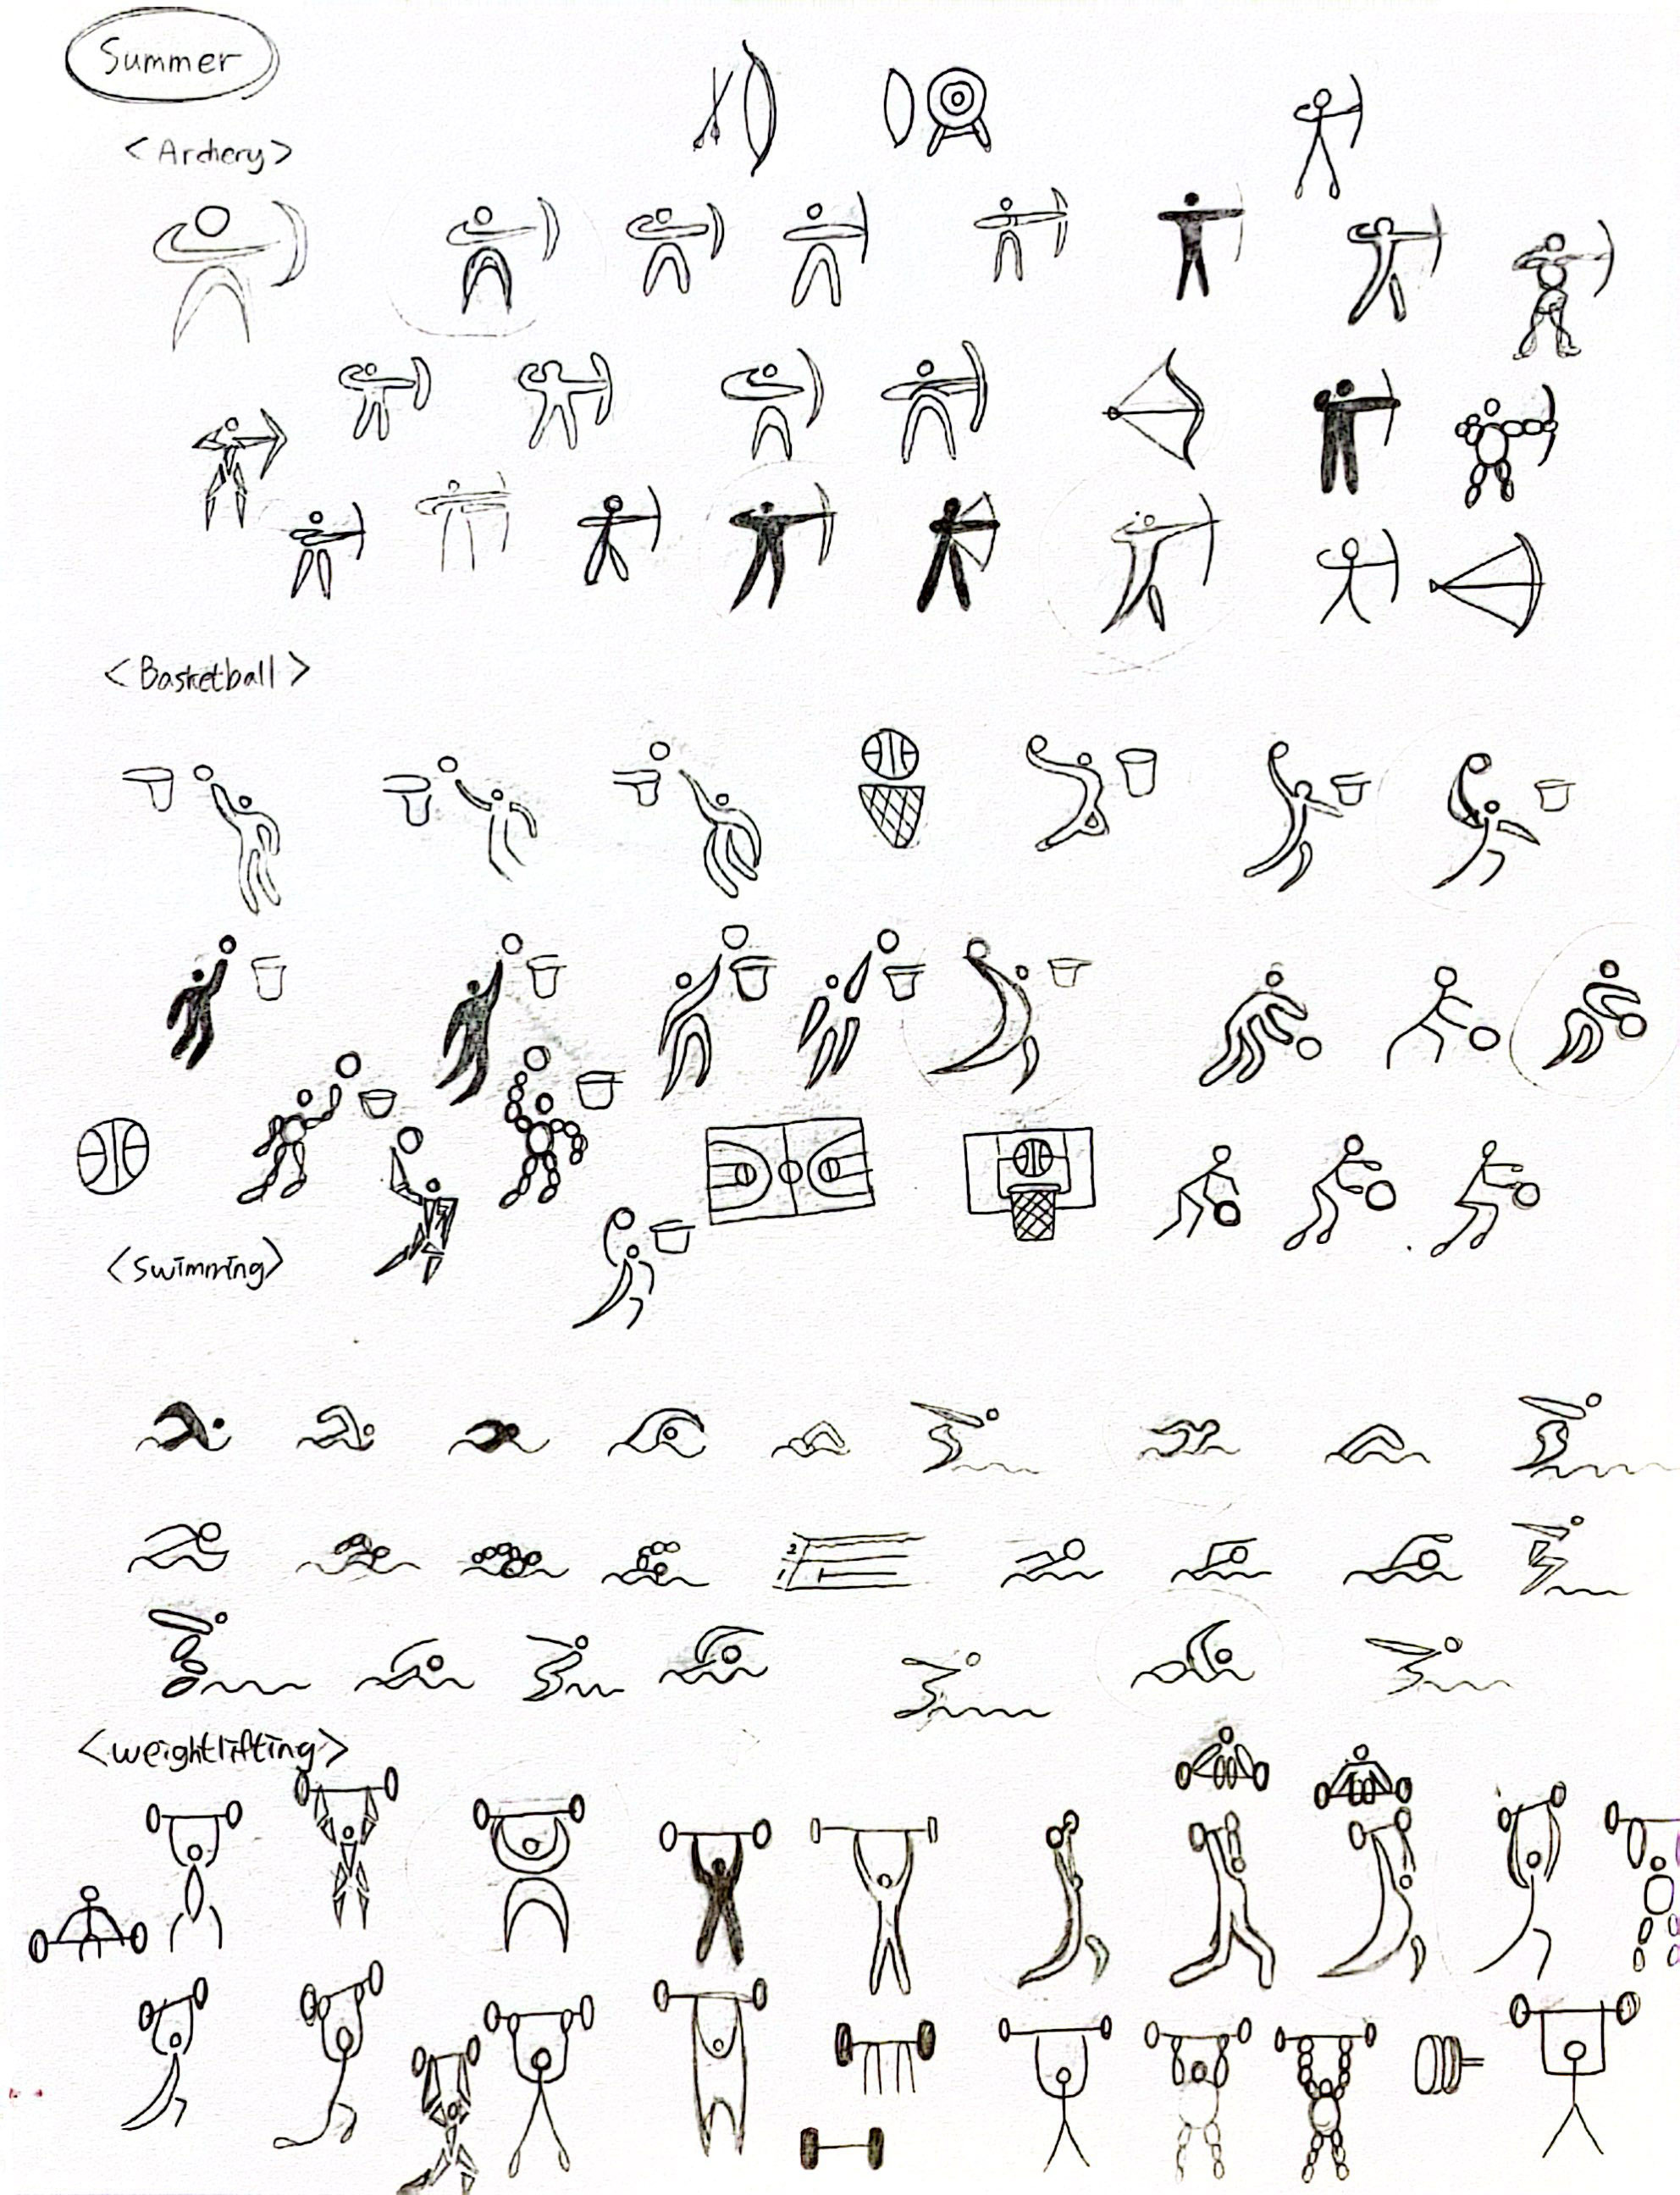 Summer
<Archery>
<Basketball>
<swimming>
2
1
<weightlifting>